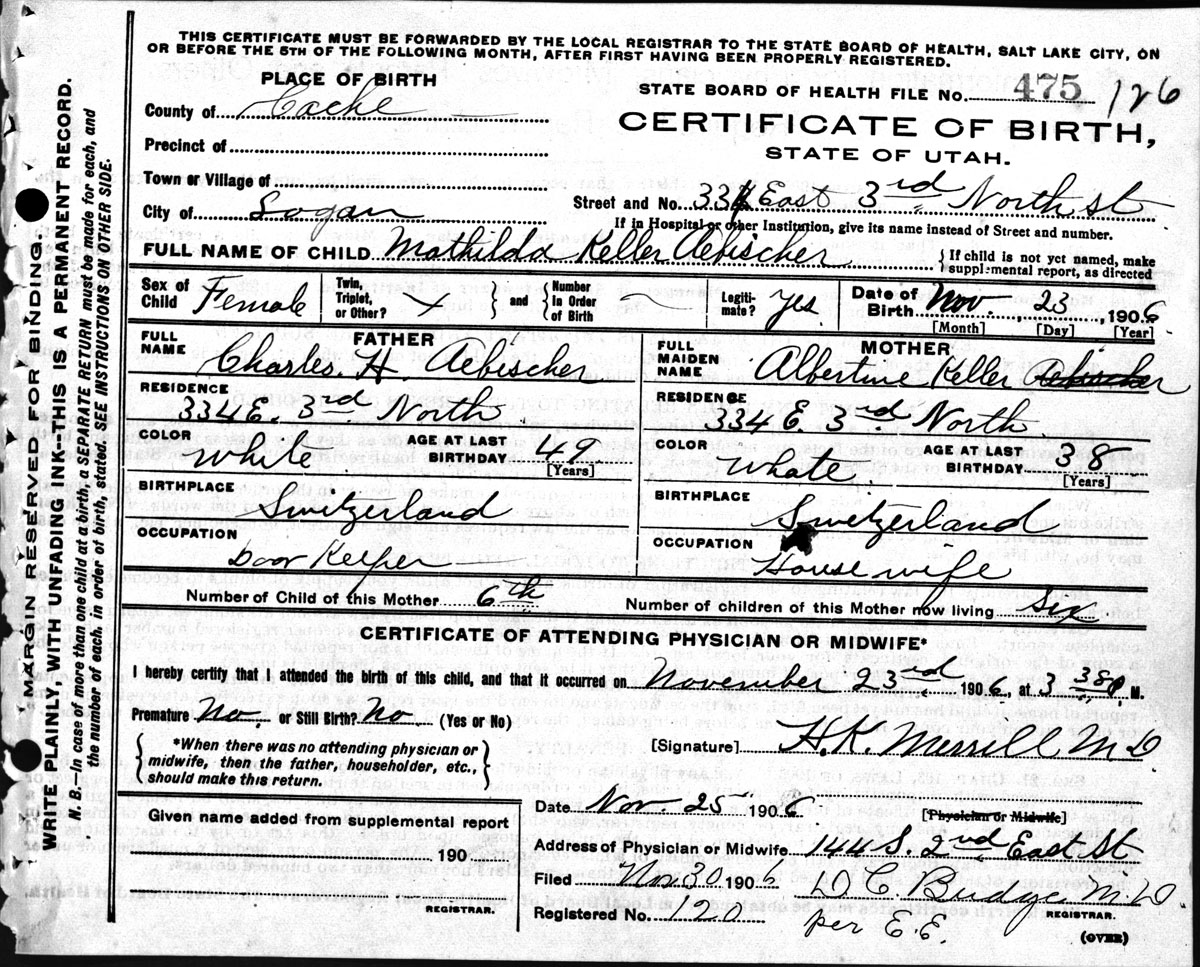 THIS CERTIFICATE MUST BE FORWARDED BY THE LOCAL REGISTRAR TO THE STATE BOARD OF HEALTH, SALT LAKE CITY, ON
OR BEFORE THE 5TH OF THE FOLLOWING MONTH, AFTER FIRST HAVING BEEN PROPERLY REGISTERED.
PLACE OF BIRTH
STATE BOARD OF HEALTH FILE No. 475 126
County of Cache
CERTIFICATE OF BIRTH,
STATE OF UTAH.
Precinct of
Town or Village of
Street and No. 334 East 3rd North st
City of Logan
If in Hospital or other Institution, give its name instead of Street and number.
FULL NAME OF CHILD Mathilda Keller Aebischer
If child is not yet named, make
supplemental report, as directed
Sex of Child Female
Twin, Triplet, or Other? and Number in Order of Birth
Legiti-mate? Yes
Date of Birth Nov. 23, 1906
[Month] [Day] [Year]
FATHER
FULL NAME Charles. H. Aebischer
RESIDENCE
334 E. 3rd North
COLOR White AGE AT LAST BIRTHDAY 49
[Years]
BIRTHPLACE
Switzerland
OCCUPATION
Door Keeper
MOTHER
FULL MAIDEN NAME Albertine Keller Aebischer
RESIDENCE
334 E. 3rd North
COLOR White. AGE AT LAST BIRTHDAY 38
[Years]
BIRTHPLACE
Switzerland
OCCUPATION
House wife
Number of Child of this Mother 6th
Number of children of this Mother now living Six
CERTIFICATE OF ATTENDING PHYSICIAN OR MIDWIFE*
I hereby certify that I attended the birth of this child, and that it occurred on November 23rd 1906, at 3 30 P. M.
Premature No. or Still Birth? No. (Yes or No)
*When there was no attending physician or
midwife, then the father, householder, etc.,
should make this return.
[Signature] H. K. Merrill M D
[Physician or Midwife]
Date Nov. 25 1906
Given name added from supplemental report
190
REGISTRAR.
Address of Physician or Midwife 144 S. 2nd East St
Filed Nov 30 1906 D C Budge M. D.
REGISTRAR.
Registered No. 120 per E. E.
(OVER)
MARGIN RESERVED FOR BINDING
WRITE PLAINLY, WITH UNFADING INK--THIS IS A PERMANENT RECORD.
N. B.—In case of more than one child at a birth, a SEPARATE RETURN must be made for each, and
the number of each, in order of birth, stated. SEE INSTRUCTIONS ON OTHER SIDE.